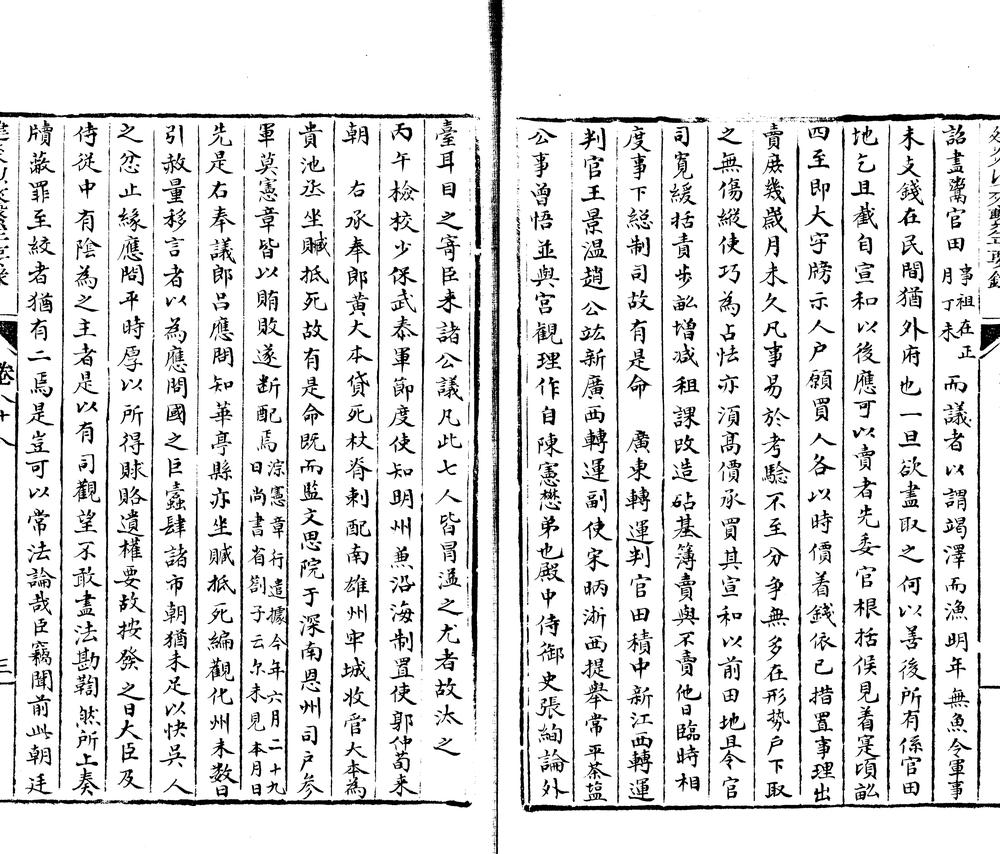 詔盡鬻官田事祖在正月丁未而議者以謂竭澤而漁明年無魚今軍事
未支錢在民間猶外府也一旦欲盡取之何以善後所有係官田
地乞且截自宣和以後應可以賣者先委官根括候見着寔頃畝
四至即大字牓示人户願買人各以時價着錢依已措置事理出
賣庶幾歲月未久凡事易於考驗不至分爭無多在形勢户下取
之無傷縱使巧為占怯亦須高價承買其宣和以前田地且令官
司寛緩括責步畝増減租課改造砧基簿賣與不賣他日臨時相
度事下緫制司故有是命　廣東轉運判官田積中新江西轉運
判官王景温趙公竑新廣西轉運副使宋昞淅西提舉常平茶塩
公事曾悟並與宫觀理作自陳憲懋弟也殿中侍御史張絢論外
臺耳目之寄臣来諸公議凡此七人皆冒濫之尤者故汰之
丙午檢校少保武泰軍節度使知明州兼沿海制置使郭仲荀来
朝　右承奉郎黄大本貸死杖脊刺配南雄州牢城收管大本為
貴池丞坐贓抵死故有是命既而監文思院于深南恩州司户參
軍莫憲章皆以賄敗遂断配焉淙憲章行遣據今年六月二十九日尚書省劄子云尔未見本月日
先是右奉議郎吕應問知華亭縣亦坐贓抵死編觀化州未数日
引赦量移言者以為應問國之巨蠧肆諸市朝猶未足以快吳人
之忿止緣應問平時厚以所得賕賂遺權要故按發之日大臣及
侍從中有陰為之主者是以有司觀望不敢盡法勘鞫然所上奏
牘蔽罪至絞者猶有二焉是豈可以常法論哉臣竊聞前此朝廷
卷八十八
三